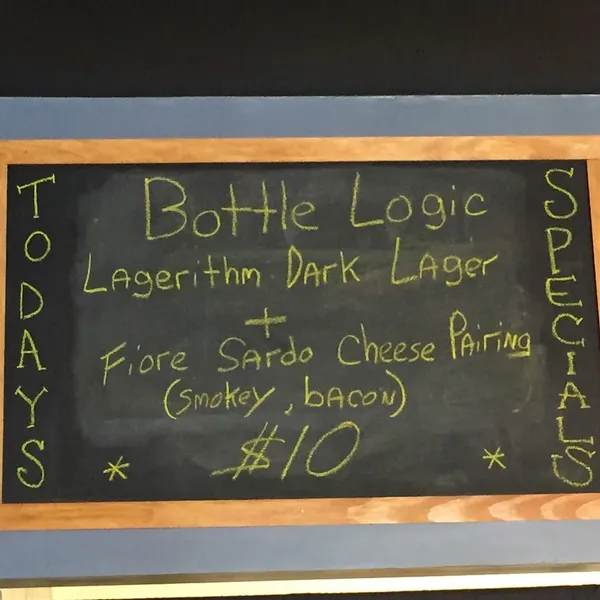 TODAYS
Bottle Logic
Lagerithm Dark Lager
+
Fiore Sardo Cheese Pairing
(smokey, bacon)
* $10 *
SPECIALS